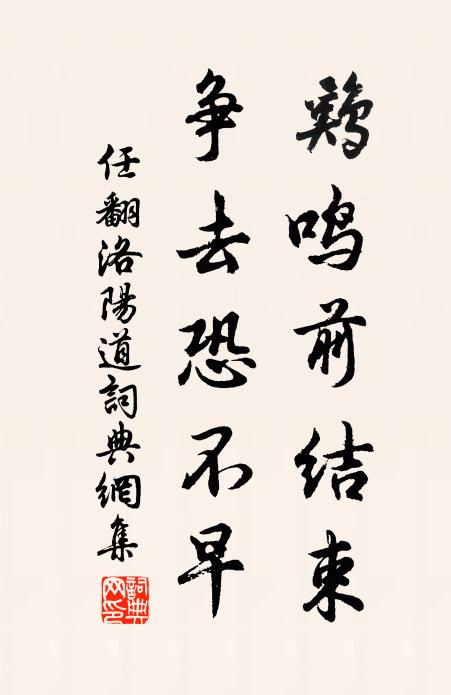 鷄鳴前結束
争去恐不早
任翻洛陽道詞典網集
詞典網印